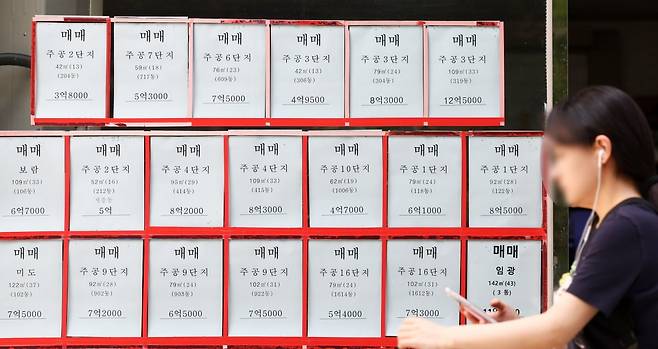 매매
주공2단지
42㎡(13)
(204동)
3억8000
매매
주공7단지
59㎡(18)
(717동)
5억3000
매매
주공6단지
76㎡(23)
(609동)
7억5000
매매
주공3단지
42㎡(13)
(306동)
4억9500
매매
주공3단지
79㎡(24)
(304동)
8억3000
매매
주공3단지
109㎡(33)
(319동)
12억5000
매매
보람
109㎡(33)
(106동)
6억7000
매매
주공2단지
52㎡(16)
(212동)
5억
매매
주공4단지
95㎡(29)
(414동)
8억2000
매매
주공4단지
109㎡(33)
(415동)
8억3000
매매
주공10단지
62㎡(19)
(1006동)
4억7000
매매
주공1단지
79㎡(24)
(118동)
6억1000
매매
주공1단지
92㎡(28)
(122동)
8억5000
매매
미도
122㎡(37)
(102동)
7억5000
매매
주공9단지
92㎡(28)
(902동)
7억2000
매매
주공9단지
79㎡(24)
(903동)
6억5000
매매
주공9단지
102㎡(31)
(922동)
7억5000
매매
주공16단지
79㎡(24)
(1614동)
5억4000
매매
주공16단지
102㎡(31)
(1612동)
7억3000
매매
임광
142㎡(43)
(3동)